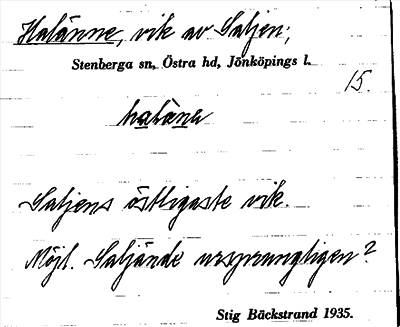 Halänne, vik av Saljen;
Stenberga sn, Östra hd, Jönköpings l.
15.
Saljens östligaste vik.
Möjl. Saljände ursprungligen?
Stig Bäckstrand 1935.